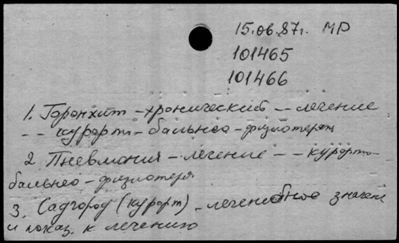 15.06.87г. МР
101465
101466
1. Бронхит – хронический – – лечение
– – курорт – бальнео – физиотерап
2. Пневмания – лечение – – курорт-
бальнео – физиотера
3. Садгород (курорт) – лечебное значен
и показ. к лечению